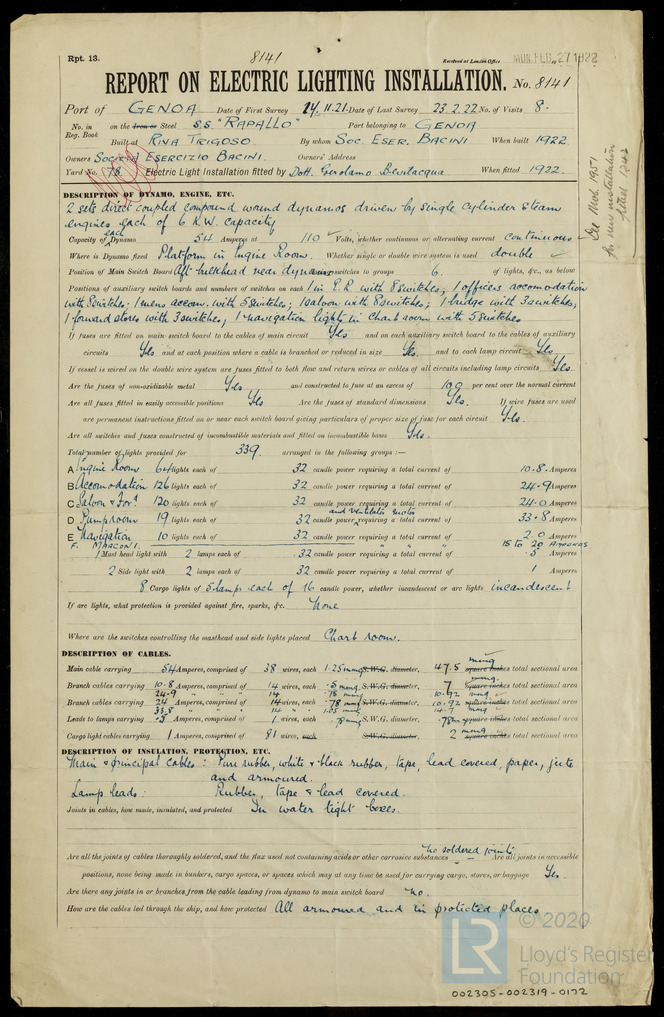 Rpt. 13.
8141
Received at London Office MON. FEB. 27 1922
REPORT ON ELECTRIC LIGHTING INSTALLATION. No. 8141
Port of GENOA Date of First Survey 24.11.21. Date of Last Survey 23.2.22 No. of Visits 8.
No. in Reg. Book on the Iron or Steel S.S. "RAPALLO" Port belonging to GENOA
Built at RIVA TRIGOSO By whom SOC. ESER. BACINI When built 1922
Owners SOCIETÀ ESERCIZIO BACINI. Owners' Address
Yard No. 78 Electric Light Installation fitted by Dott. Gerolamo Bevilacqua When fitted 1922.
See Mch. 1951
for new installation
fitted 1942
DESCRIPTION OF DYNAMO, ENGINE, ETC.
2 sets direct coupled compound wound dynamos driven by single cylinder steam
engines each of 6 K.W. capacity
Capacity of each Dynamo 54 Amperes at 110 Volts, whether continuous or alternating current continuous
Where is Dynamo fixed Platform in Engine Room. Whether single or double wire system is used double
Position of Main Switch Board Aft bulkhead near dynamos switches to groups 6. of lights, &c., as below
Positions of auxiliary switch boards and numbers of switches on each 1 in E.R. with 8 switches; 1 officers accomodation
with 8 switches; 1 mens accom. with 5 switches; 1 saloon with 8 switches; 1 bridge with 3 switches;
1 forward stores with 3 switches; 1 navigation lights in Chart room with 5 switches
If fuses are fitted on main switch board to the cables of main circuit Yes and on each auxiliary switch board to the cables of auxiliary
circuits Yes and at each position where a cable is branched or reduced in size Yes. and to each lamp circuit Yes
If vessel is wired on the double wire system are fuses fitted to both flow and return wires or cables of all circuits including lamp circuits Yes.
Are the fuses of non-oxidizable metal Yes and constructed to fuse at an excess of 100 per cent over the normal current
Are all fuses fitted in easily accessible positions Yes Are the fuses of standard dimensions Yes. If wire fuses are used
are permanent instructions fitted on or near each switch board giving particulars of proper size of fuse for each circuit Yes.
Are all switches and fuses constructed of incombustible materials and fitted on incombustible bases Yes.
Total number of lights provided for 339 arranged in the following groups :—
A Engine Room 64 lights each of 32 candle power requiring a total current of 10.8 Amperes
B Accomodation 126 lights each of 32 candle power requiring a total current of 24.9 Amperes
C Saloon & For'd 120 lights each of 32 candle power requiring a total current of 24.0 Amperes
D Pumproom 19 lights each of 32 candle power and ventilator motor requiring a total current of 33.8 Amperes
E Navigation 10 lights each of 32 candle power requiring a total current of 2.0 Amperes
F. MARCONI. " " 15 to 20 AMPERES
1 Mast head light with 2 lamps each of 32 candle power requiring a total current of .5 Amperes
2 Side light with 2 lamps each of 32 candle power requiring a total current of 1 Amperes
8 Cargo lights of 5 lamps each of 16 candle power, whether incandescent or arc lights incandescent
If arc lights, what protection is provided against fire, sparks, &c. None
Where are the switches controlling the masthead and side lights placed Chart room.
DESCRIPTION OF CABLES.
Main cable carrying 54 Amperes, comprised of 38 wires, each 1.25 mmq S.W.G. diameter, 47.5 mmq square inches total sectional area
Branch cables carrying 10.8 Amperes, comprised of 14 wires, each .5 mmq S.W.G. diameter, 7 mmq square inches total sectional area
24.9 " 14 " .78 mmq 10.92 mmq
Branch cables carrying 24 Amperes, comprised of 14 wires, each .78 mmq S.W.G. diameter, 10.92 square inches total sectional area
33.8 " 14 " 1.05 mmq 14.7 mmq
Leads to lamps carrying .5 Amperes, comprised of 1 wires, each .78 mmq S.W.G. diameter, .78 mmq square inches total sectional area
Cargo light cables carrying 1 Amperes, comprised of 81 wires, each S.W.G. diameter, 2 mmq square inches total sectional area
DESCRIPTION OF INSULATION, PROTECTION, ETC.
Main & principal cables : Pure rubber, white & black rubber, tape, lead covered, paper, jute
and armoured.
Lamp leads: Rubber, tape & lead covered.
Joints in cables, how made, insulated, and protected In water tight boxes.
Are all the joints of cables thoroughly soldered, and the flux used not containing acids or other corrosive substances no soldered joints Are all joints in accessible
positions, none being made in bunkers, cargo spaces, or spaces which may at any time be used for carrying cargo, stores, or baggage Yes.
Are there any joints in or branches from the cable leading from dynamo to main switch board No.
How are the cables led through the ship, and how protected All armoured and in protected places
© 2020
LR
Lloyd's Register
Foundation
002305-002319-0172